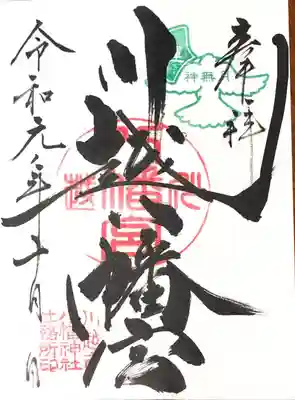 奉拝
神無月
川越八幡宮
令和元年十月 日
川越市
八幡神社
社務所印